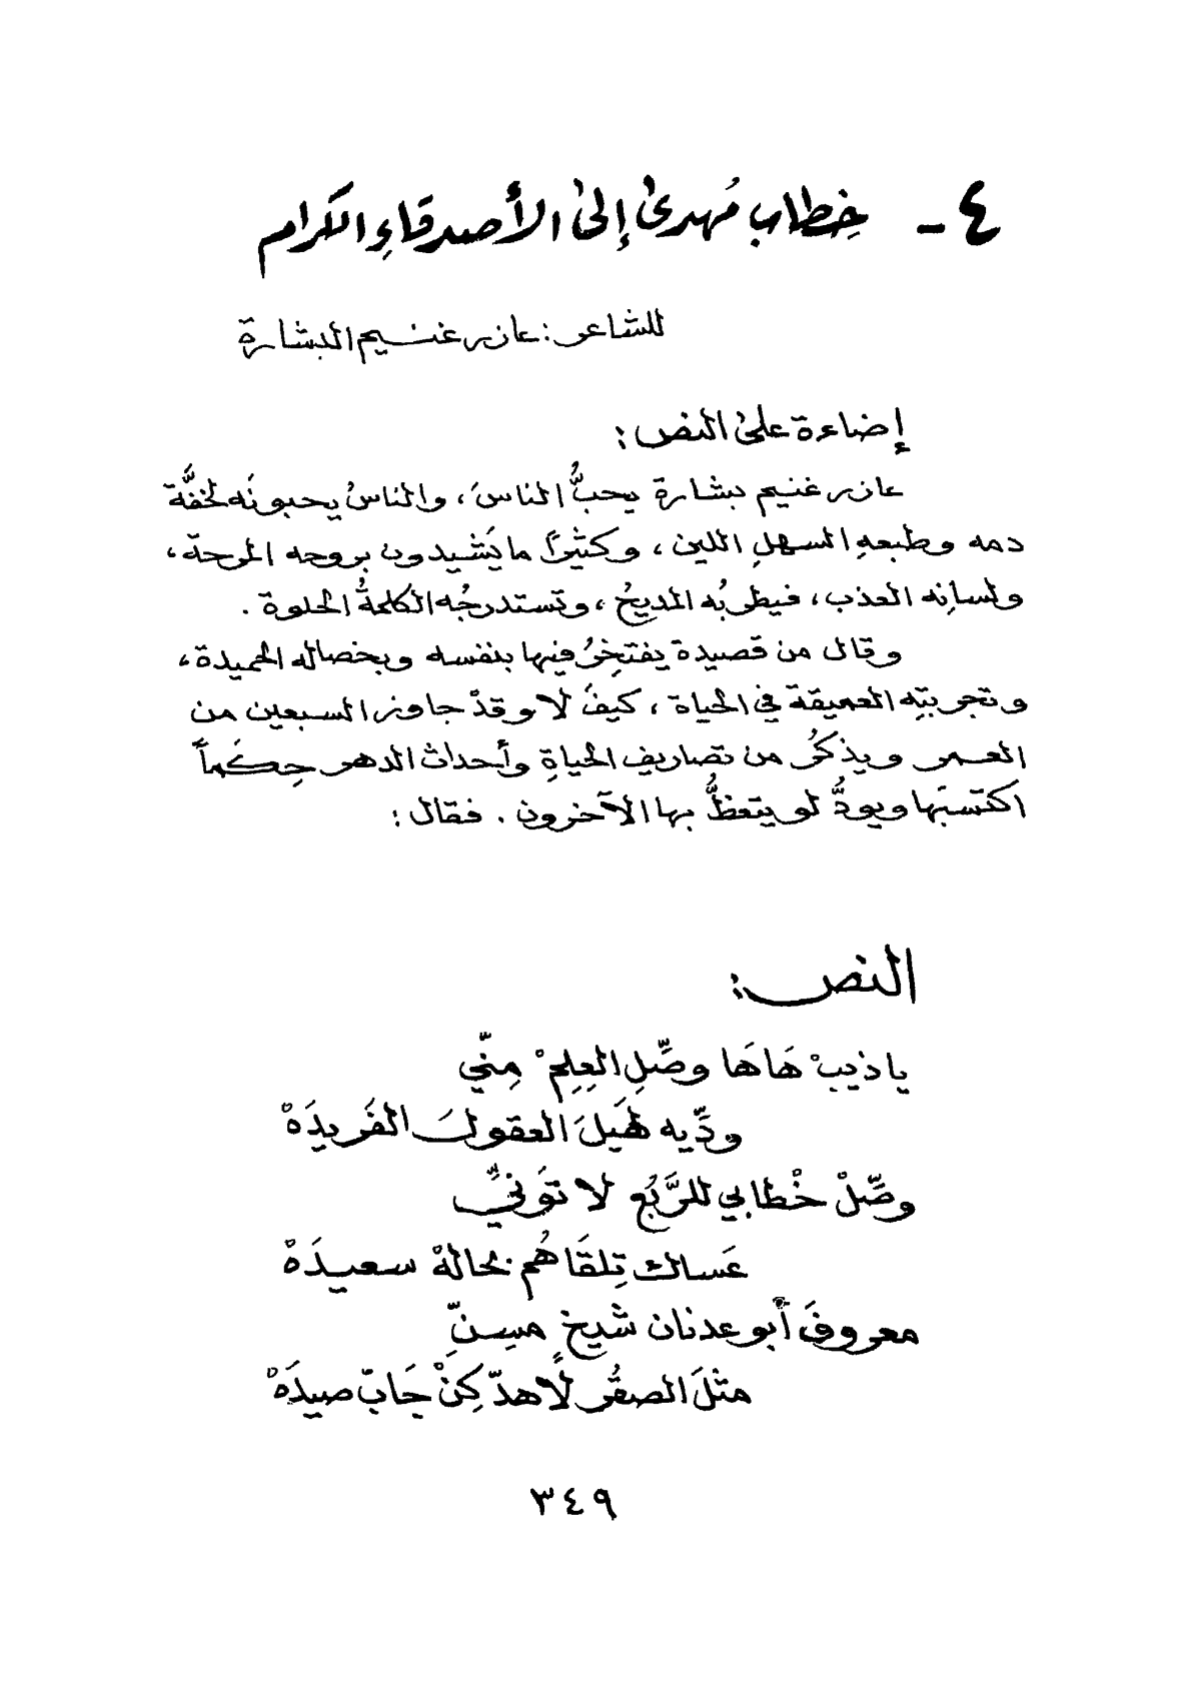 ٤ - خِطاب مُهدىٰ إلىٰ الأصدقاءِ الكرام
للشاعر: عازر غنيم البشارة
إضاءة علىٰ النص:
عازر غنيم بشارة يحبُّ الناسَ، والناسُ يحبونَه لخفَّة
دمه وطبعهِ السهلِ اللين، وكثيراً ما يَشيدون بروحه المرحة،
ولسانِه العذب، فيطربُه المديحُ، وتستدرجُه الكلمةُ الحلوة.
وقال من قصيدة يفتخِرُ فيها بنفسه وبخصاله الحميدة،
وتجربتِه العميقة في الحياة، كيفَ لا وقدْ جاوز السبعين من
العمر ويذكُر من تصاريفِ الحياةِ وأحداث الدهر حِكَماً
اكتسبَها ويودُّ لو يتعظُّ بها الآخرون. فقال:
النص:
يا ذيبْ هَاهَا وصِّلِ العِلِمْ مِنّي
ودِّيه لهَيلَ العقول الفَريدَهْ
وصِّلْ خْطابي للرَّبُع لا تَوَنيِّ
عَساك تِلقَاهُم بحالهْ سعيدَهْ
معروفَ أبو عدنان شيخٍ مسِنِّ
مثلَ الصقُر لَاهدّ كِنْ جَابّ صيدَهْ
٣٤٩